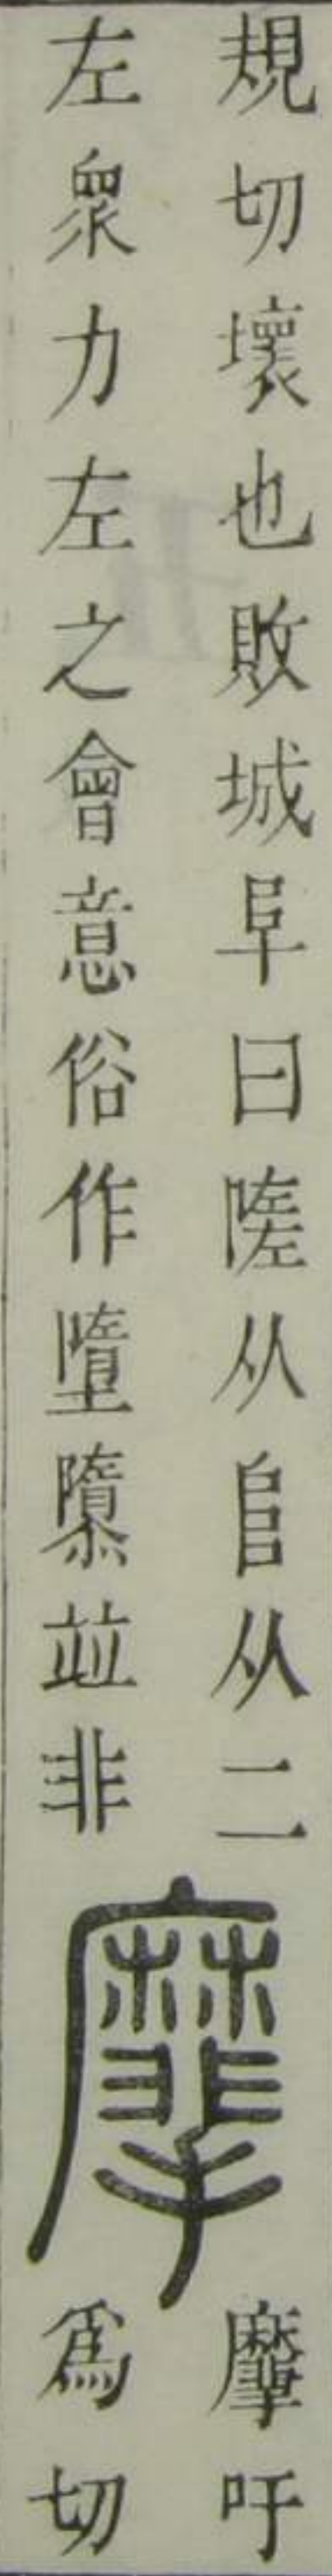 規切壞也敗城阜曰隓从𨸏从二
左眾力左之會意俗作墮隳竝非
吁
爲切